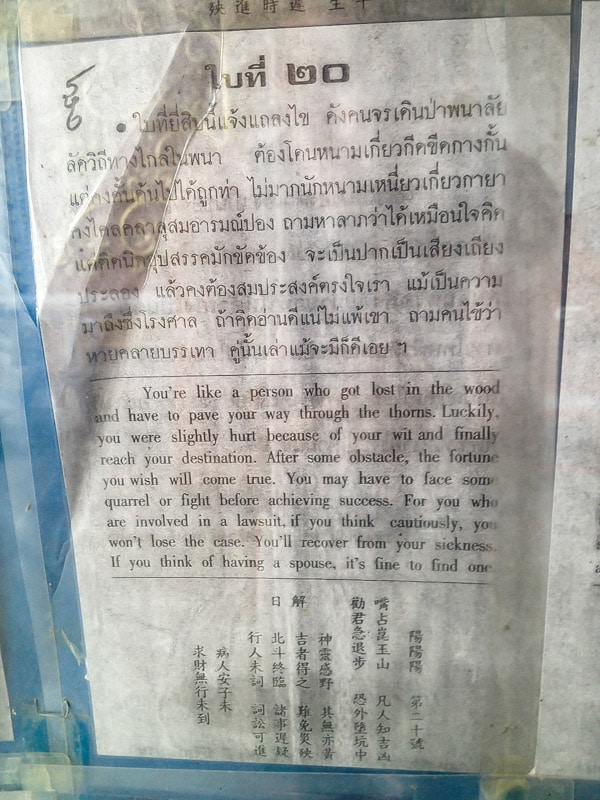 ใบที่ ๒๐
• ใบที่ยี่สิบนี้แจ้งแถลงไข ดังคนจรเดินป่าพนาลัย
ลัดวิถีทางไกลในพนา ต้องโดนหนามเกี่ยวกีดขีดกางกั้น
ไปได้ถูกท่า ไม่มากนักหนามเหนี่ยวเกี่ยวกายา
สมอารมณ์ปอง ถามหาลาภว่าได้เหมือนใจคิด
แต่ติดนิดอุปสรรคมักขัดข้อง จะเป็นปากเป็นเสียงเถียง
ประลอง แล้วคงต้องสมประสงค์ตรงใจเรา แม้เป็นความ
มาถึงซึ่งโรงศาล ถ้าคิดอ่านดีแน่ไม่แพ้เขา ถามคนไข้ว่า
หายคลายบรรเทา คู่นั้นเล่าแม้จะมีก็ดีเอย ฯ
You're like a person who got lost in the wood
and have to pave your way through the thorns. Luckily,
you were slightly hurt because of your wit and finally
reach your destination. After some obstacle, the fortune
you wish will come true. You may have to face some
quarrel or fight before achieving success. For you who
are involved in a lawsuit, if you think cautiously, you
won't lose the case. You'll recover from your sickness.
If you think of having a spouse, it's fine to find one
陽陽陽 第二十號
嘴占崑玉山 凡人知吉凶
勸君急退步 恐外墮坑中
解日
神靈感野 其無亦黃
吉者得之 難免災殃
北斗終臨 諸事遲疑
行人未詞 詞訟可進
病人安子未
求財無行未到